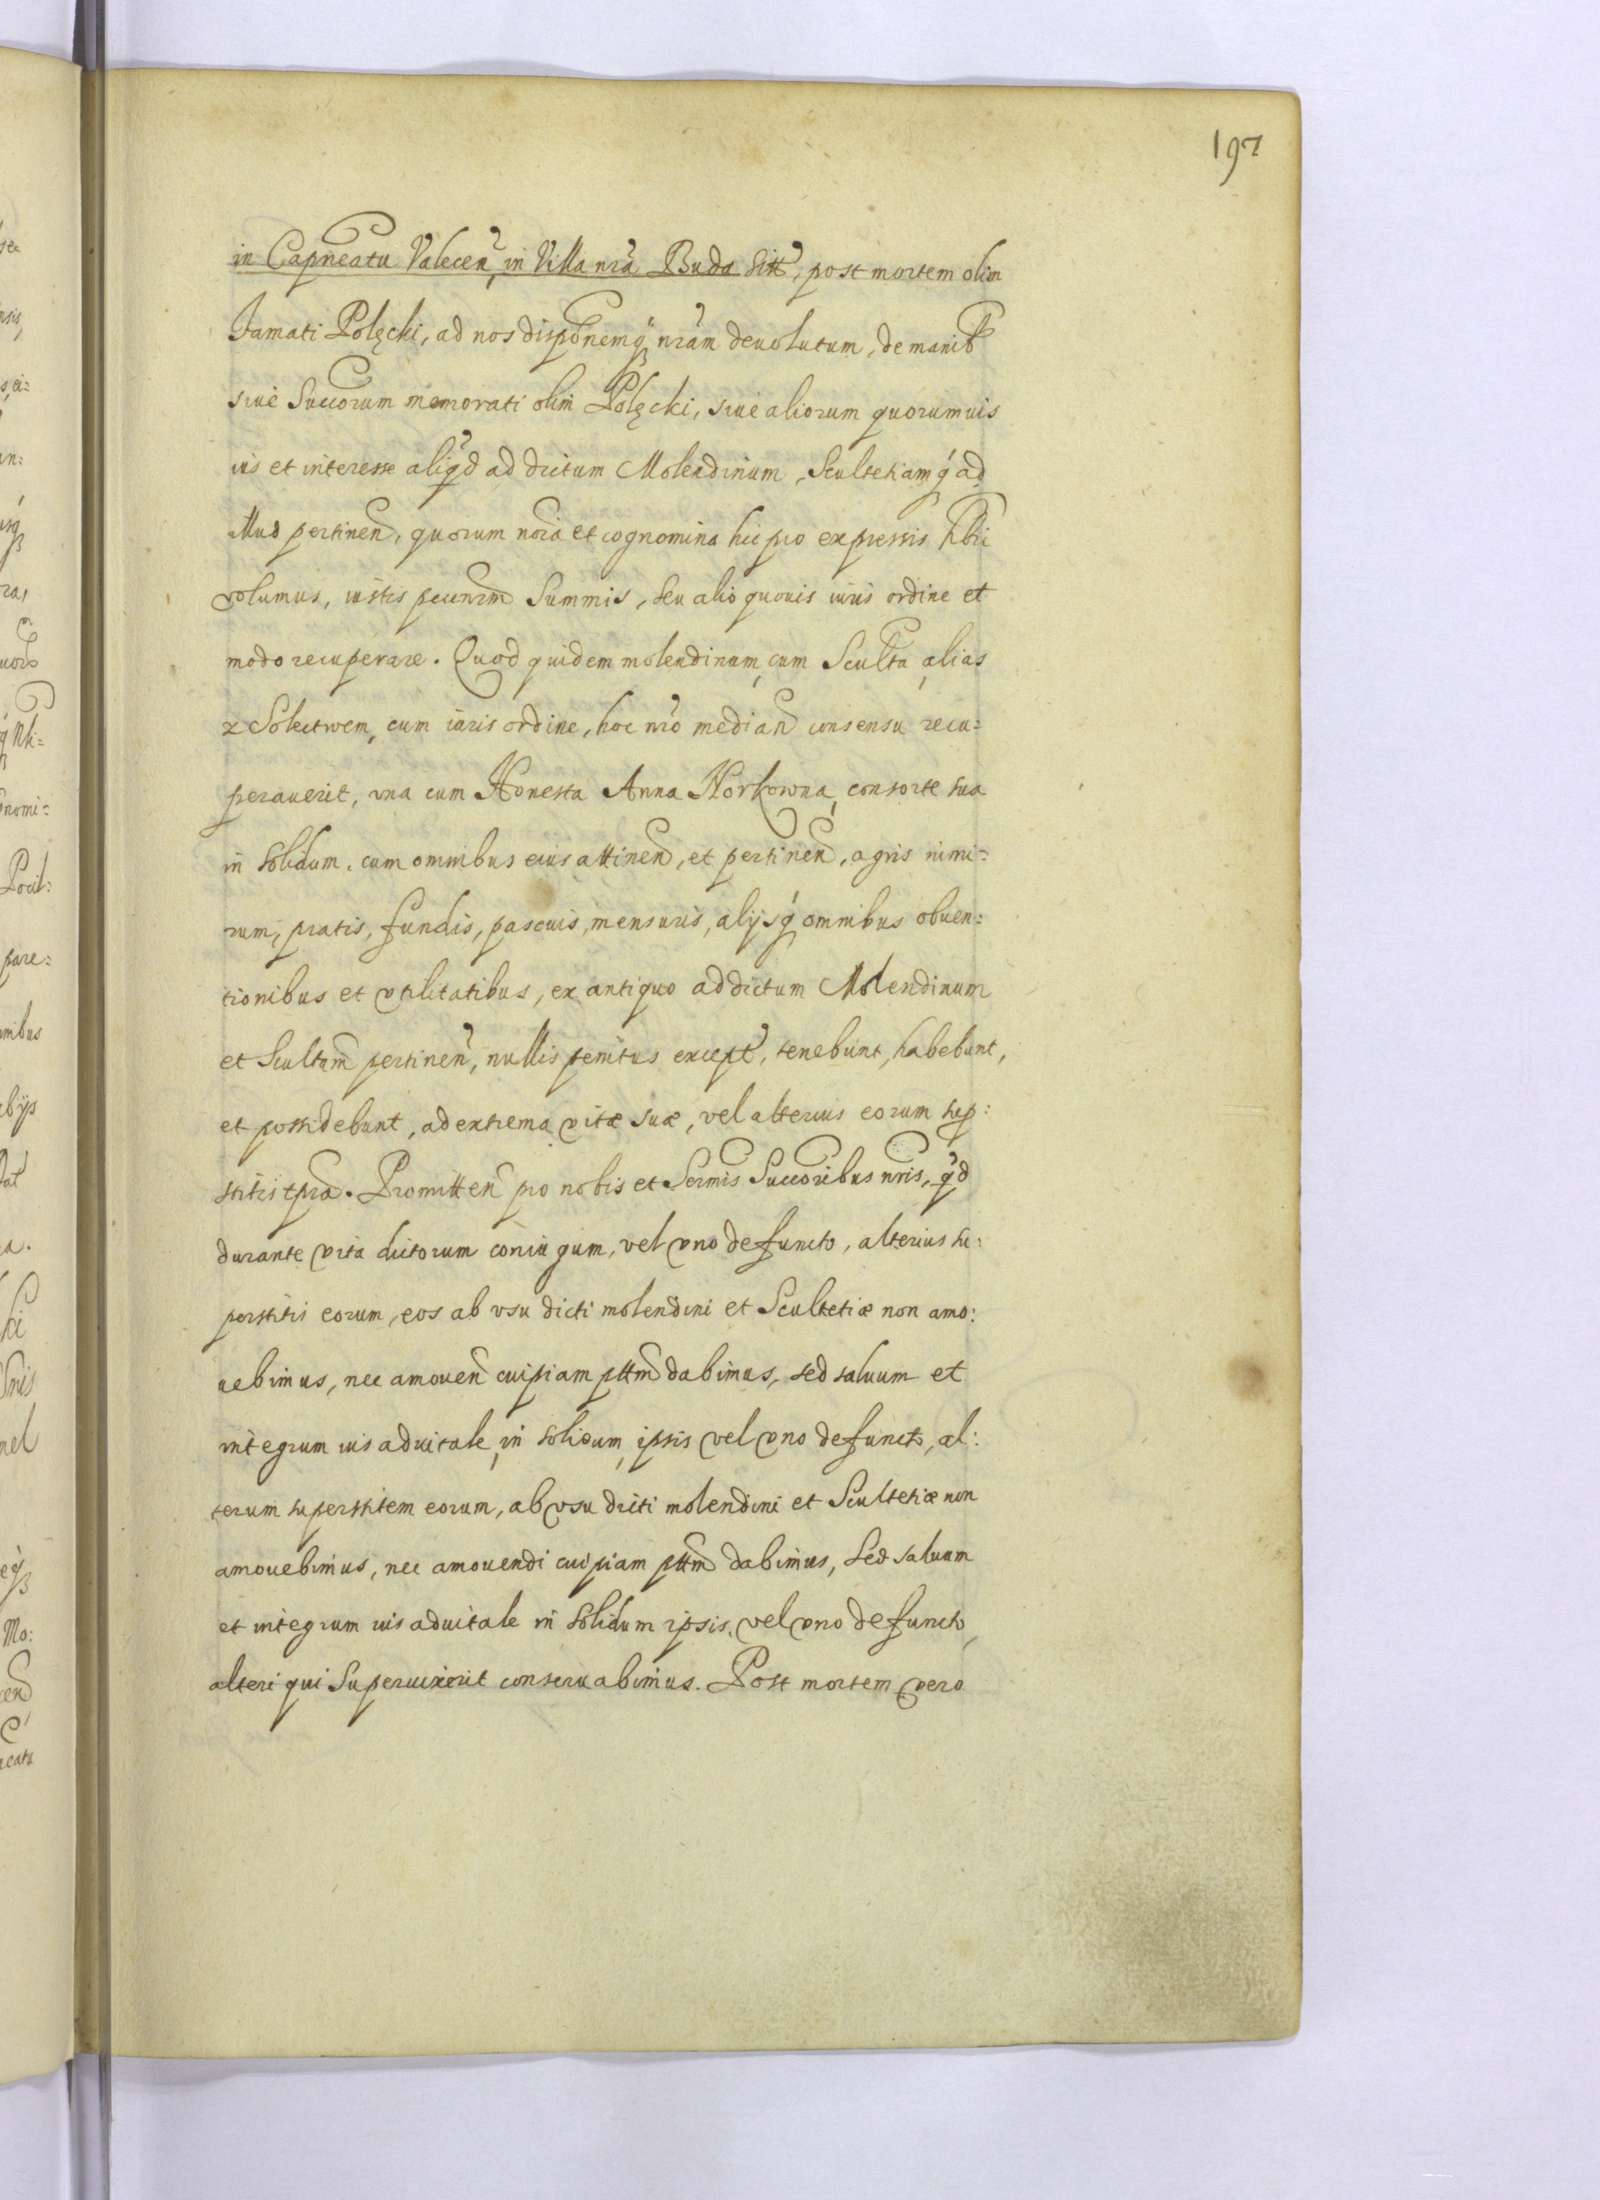 197
in Capneatu Valecen, in Villa nra Buda Sitt, post mortem olim
Famati Polęcki, ad nos disponemq nram deuolutum, de manib
siue Succorum memorati olim Polęcki, siue aliorum quorumuis
ius et interesse aliqd ad dictum Molendinum, Scultetiamq ad
illud pertinen, quorum noia et cognomina hic pro expressis hbri
volumus, iustis pecuniru Summis, seu alio quouis iuris ordine et
modo recuperare. Quod quidem molendinum, cum Sculta, alias
z Solectwem, cum iuris ordine, hoc nro median consensu recu=
perauerit, vna cum Honesta Anna Horkowna, consorte sua
in solidum, cum omnibus eius attinen, et pertinen, agris nimi=
rum, pratis, fundis, pascuis, mensuris, alijsq omnibus obuen=
tionibus et vtilitatibus, ex antiquo ad dictum Molendinum
et Scultam pertinen, nullis penitus except, tenebunt, habebunt,
et possidebunt, ad extrema vitæ suæ, vel alterius eorum sup:
stitis tpra. Promitten pro nobis et Sermis Succoribus nris, qd
durante vita dictorum coniugum, vel vno defuncto, alterius su:
perstitis eorum, eos ab vsu dicti molendini et Scultetiæ non amo:
uebimus, nec amouen cuipiam pttm dabimus, sed saluum et
integrum ius aduitale, in solidum, ipsis vel vno defuncto, al:
terum superstitem eorum, ab vsu dicti molendini et Scultetiæ non
amouebimus, nec amouendi cuipiam pttm dabimus, Sed saluum
et integrum ius aduitale in solidum ipsis, vel vno defuncto,
alteri qui Superuixerit conseruabimus. Post mortem vero